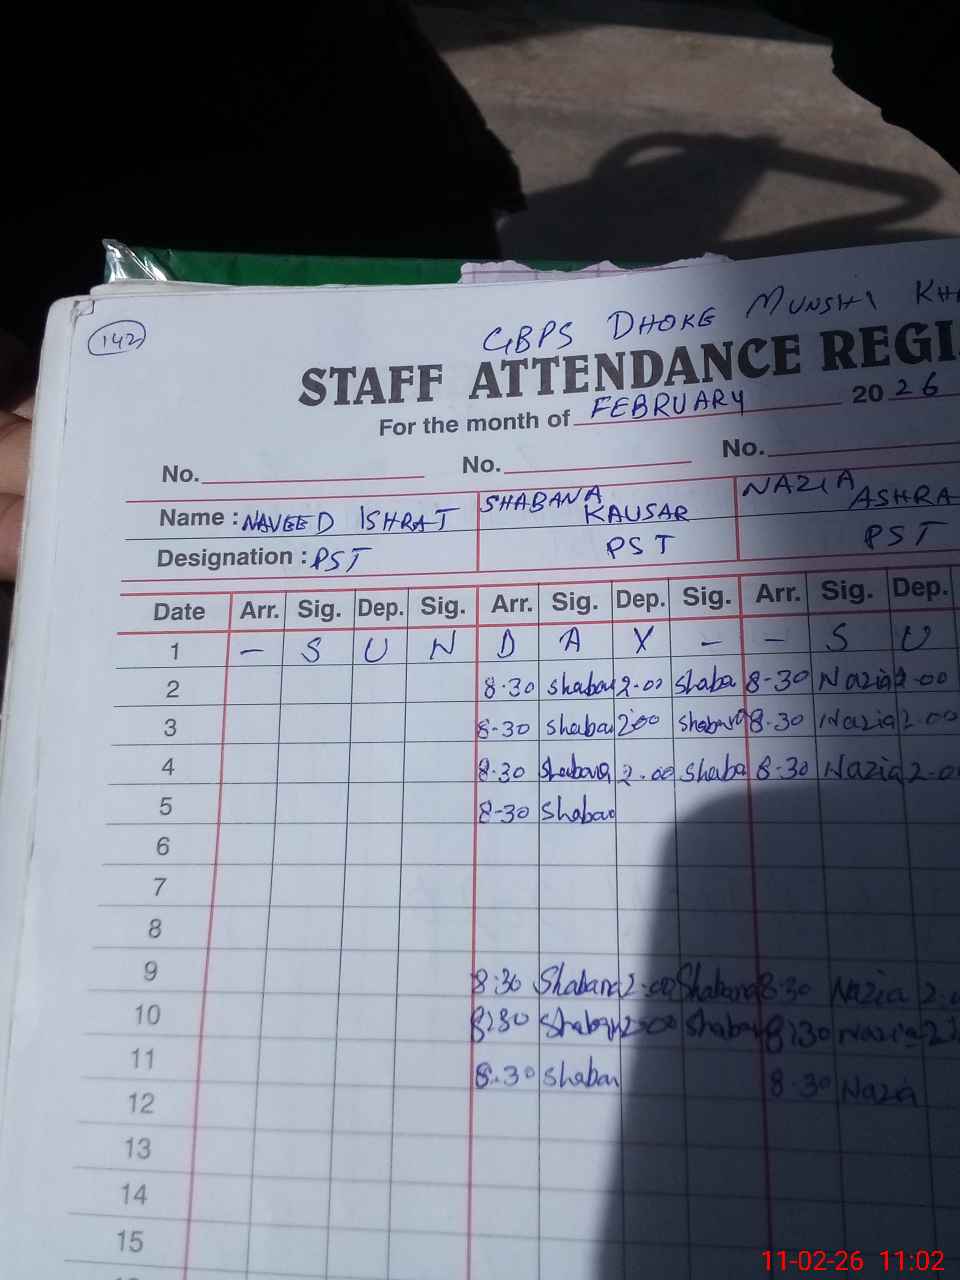 142
GBPS DHOKE MUNSHI
STAFF ATTENDANCE
For the month of FEBRUARY 2026
No. No. No.
Name : NAVEED ISHRAT SHABANA KAUSAR NAZIA
Designation : PST PST PST
Date Arr. Sig. Dep. Sig. Arr. Sig. Dep. Sig. Arr. Sig. Dep.
1 - S U N D A Y - - S U
2 8.30 Shaban 2.00 Shaba 8-30 Nazia 2.00
3 8-30 Shaban 2.00 Shabana 8-30 Nazia 2.00
4 8.30 Shabana 2.00 Shaba 8.30 Nazia 2.00
5 8-30 Shaban
6
7
8
9 8:30 Shabana 2.00 Shabana 8.30 Nazia 2.0
10 8:30 Shaban 2.00 Shaban 8:30 Nazia 2
11 8.30 Shaban 8.30 Nazia
12
13
14
15
11-02-26 11:02